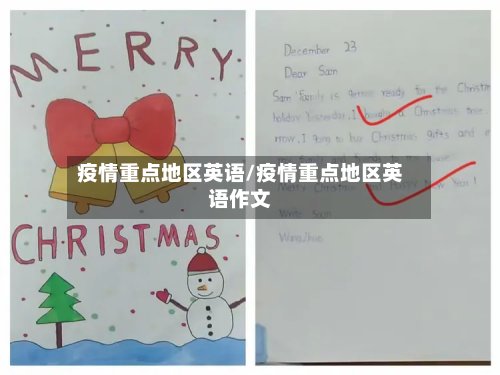 MERRY
CHRISTMAS
December 23
Dear Sam
Sam Family is ready for the Christm
holiday Yesterday. I a Christmas tree
now. I going to buy Christmas gifts and
疫情重点地区英语/疫情重点地区英
语作文
Merry Christmas and Happy New Year!
Write soon